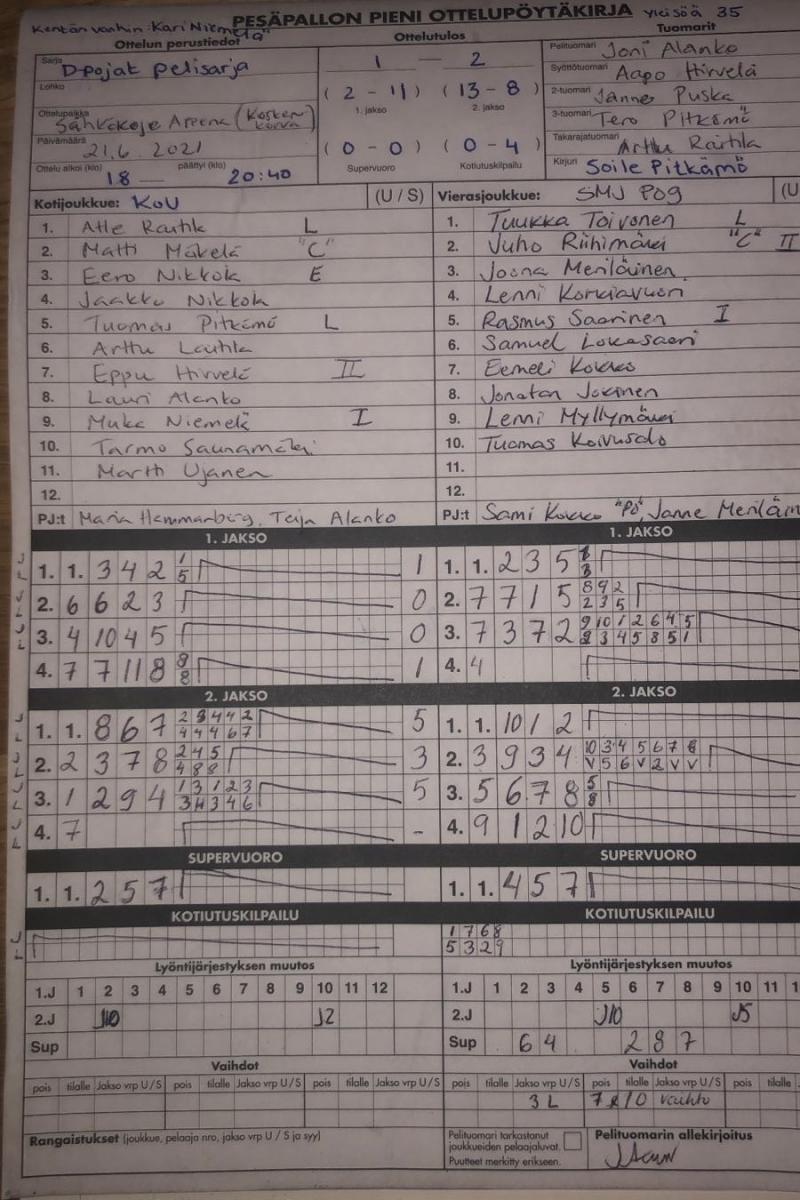 Kentän vanhin: Kari Niemelä
PESÄPALLON PIENI OTTELUPÖYTÄKIRJA
Yleisöä 35
Ottelun perustiedot
Ottelutulos
Tuomarit
Sarja D-pojat pelisarja
1 — 2
Pelituomari Joni Alanko
Lohko
(2 - 11) (13 - 8)
Syöttötuomari Aapo Hirvelä
1. jakso 2. jakso
2-tuomari Janne Puska
Ottelupaikka Sähkökoje Areena (Koskenkorva)
3-tuomari Tero Pitkämö
Päivämäärä 21.6.2021
(0 - 0) (0 - 4)
Takarajatuomari Arttu Rautila
Ottelu alkoi (klo) 18 päättyi (klo) 20:40
Supervuoro Kotiutuskilpailu
Kirjuri Soile Pitkämö
Kotijoukkue: KoU (U / S)
Vierasjoukkue: SMJ Pog (U
1. Atle Rautila L
1. Tuukka Toivonen L
2. Matti Mäkelä "C"
2. Juho Riihimäki "C" II
3. Eero Nikkola E
3. Joona Meriläinen
4. Jaakko Nikkola
4. Lenni Korkiavuori
5. Tuomas Pitkämö L
5. Rasmus Saarinen I
6. Arttu Lautila
6. Samuel Lokasaari
7. Eppu Hirvelä II
7. Eemeli Kokko
8. Lauri Alanko
8. Jonatan Jokinen
9. Niemelä I
9. Lenni Myllymäki
10. Tarmo Saunamäki
10. Tuomas Koivusalo
11. Martti Ujanen
11.
12.
12.
PJ:t Maria Hemmanberg, Teija Alanko
PJ:t Sami Kokko "Po", Janne Meriläin
1. JAKSO
1. JAKSO
1. 1. 3 4 2 1 5 1
1. 1. 2 3 5
2. 6 6 2 3 0
2. 7 7 1 5 8 9 2
2 3 5
3. 4 10 4 5 0
3. 7 3 7 2 9 10 1 2 6 4 5
3 4 5 8 5 1
4. 7 7 11 8 9 8 1
4. 4
2. JAKSO
2. JAKSO
1. 1. 8 6 7 2 3 4 4 2 5
4 4 4 6 7
1. 1. 10 1 2
2. 2 3 7 8 2 4 5 3
4 8 8
2. 3 9 3 4 10 3 4 5 6 7 8
V 5 6 V 2 V V
3. 1 2 9 4 1 3 1 2 3 5
3 11 3 4 6
3. 5 6 7 8 5 8
4. 7 -
4. 9 1 2 10
SUPERVUORO
SUPERVUORO
1. 1. 2 5 7
1. 1. 4 5 7
KOTIUTUSKILPAILU
KOTIUTUSKILPAILU
1 7 6 8
5 3 2 9
Lyöntijärjestyksen muutos
Lyöntijärjestyksen muutos
1.J 1 2 3 4 5 6 7 8 9 10 11 12
1.J 1 2 3 4 5 6 7 8 9 10 11 1
2.J J10 J2
2.J J10 J5
Sup
Sup 6 4 2 8 7
Vaihdot
Vaihdot
pois tilalle Jakso vrp U / S pois tilalle Jakso vrp U / S pois tilalle Jakso vrp U / S
pois tilalle Jakso vrp U / S pois tilalle Jakso vrp U / S pois tilalle
3 L 7 10 vaihto
Rangaistukset (joukkue, pelaaja nro, jakso vrp U / S ja syy)
Pelituomari tarkastanut joukkueiden pelaajaluvat.
Puutteet merkitty erikseen.
Pelituomarin allekirjoitus